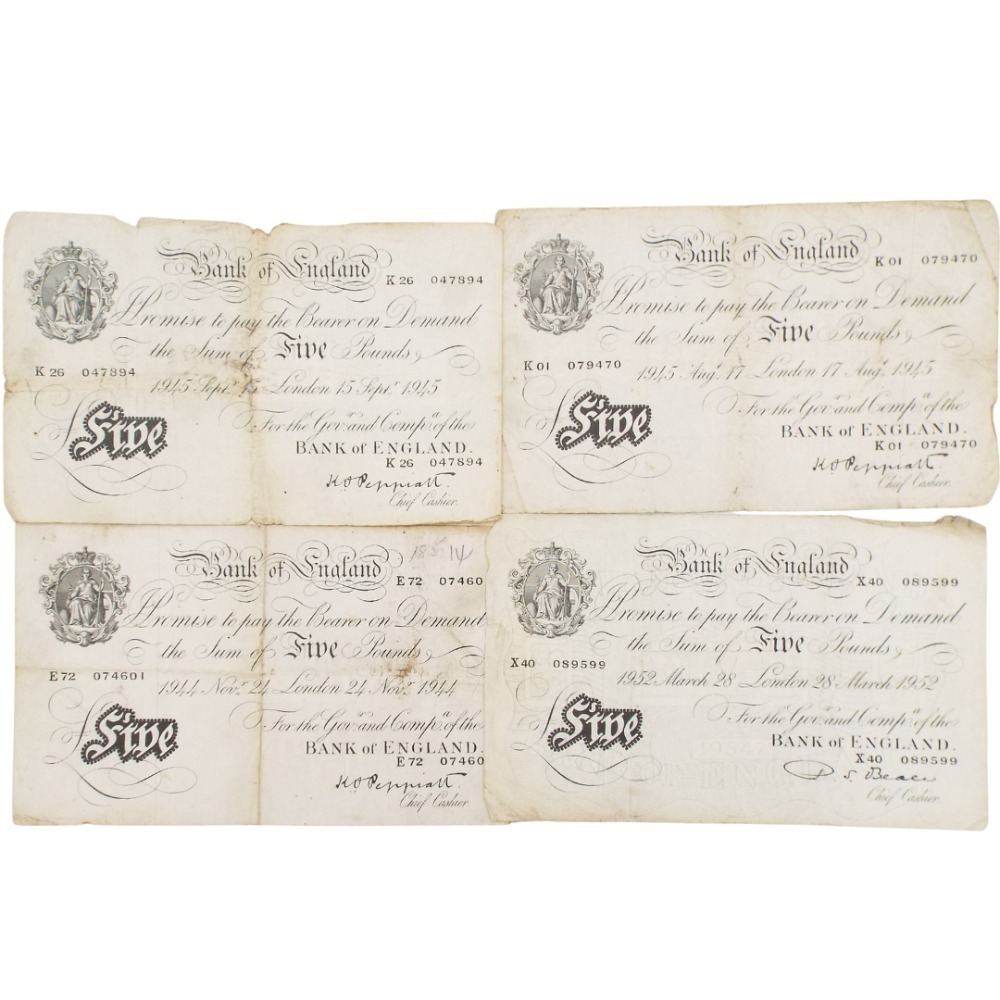 Bank of England
K 26 047894
I Promise to pay the Bearer on Demand
the Sum of Five Pounds
K 26 047894
1945 Septr. 15 London 15 Septr. 1945
For the Govr. and Compa. of the
BANK of ENGLAND.
K 26 047894
£Five
K O Peppiatt
Chief Cashier.
Bank of England
K 01 079470
I Promise to pay the Bearer on Demand
the Sum of Five Pounds
K 01 079470
1945 Augt. 17 London 17 Augt. 1945
For the Govr. and Compa. of the
BANK of ENGLAND.
K 01 079470
£Five
K O Peppiatt
Chief Cashier.
14
Bank of England
E 72 07460
I Promise to pay the Bearer on Demand
the Sum of Five Pounds
E 72 074601
1944 Novr. 24 London 24 Novr. 1944
For the Govr. and Compa. of the
BANK of ENGLAND.
E 72 07460
£Five
K O Peppiatt
Chief Cashier.
Bank of England
X 40 089599
I Promise to pay the Bearer on Demand
the Sum of Five Pounds
X 40 089599
1952 March 28 London 28 March 1952
For the Govr. and Compa. of the
BANK of ENGLAND.
X 40 089599
£Five
P. S. Beale
Chief Cashier.